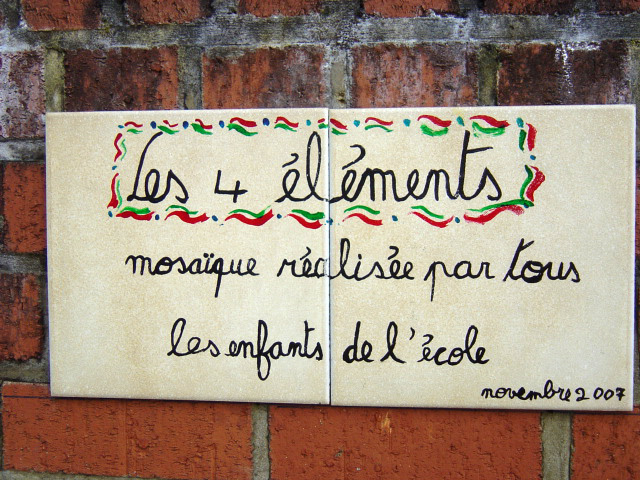 Les 4 éléments
mosaïque réalisée par tous
les enfants de l'école
novembre 2007